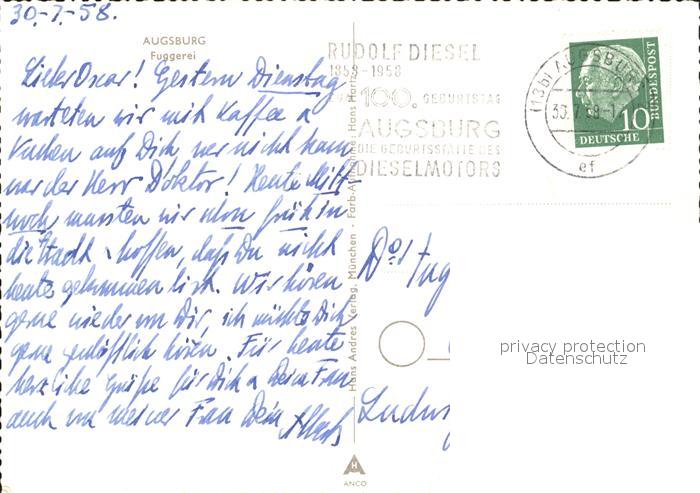 30.7.58.
AUGSBURG
Fuggerei
Lieber Oscar! Gestern Dienstag
warteten wir mit Kaffee u
Kuchen auf Dich wer nicht kam
war der Herr Doktor! Heute Mitt-
woch mussten wir schon früh in
die Stadt u hoffen, daß Du nicht
heute gekommen bist. Wir hören
gerne wieder von Dir, ich möchte Dich
gerne geschäftlich hören. Für heute
herzliche Grüße für Dich u Deine Frau
auch von meiner Frau Dein
Hans Andres Verlag, München - Farb-Aufnahme: Hans
RUDOLF DIESEL
1858-1958
100. GEBURTSTAG
AUGSBURG
DIE GEBURTSSTÄTTE DES
DIESELMOTORS
(13b) AUGSBURG
30.7.58
ef
10
DEUTSCHE
BUNDESPOST
Ing
Ludwig
privacy protection
Datenschutz
ANCO